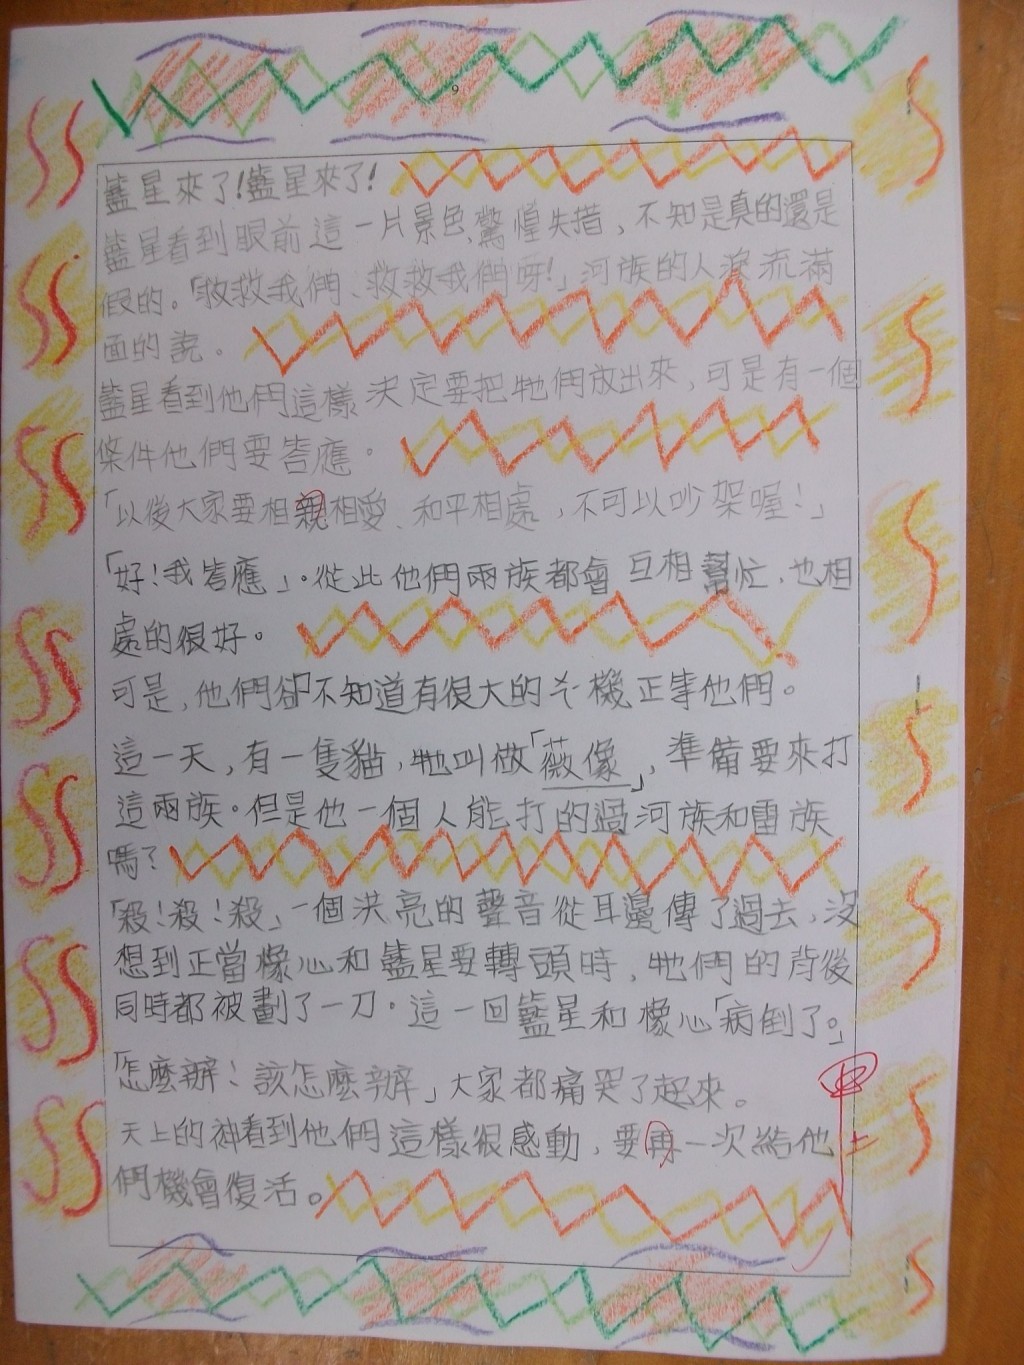 9
籃星來了!籃星來了!
籃星看到眼前這一片景色,驚惶失措,不知是真的還是
假的。「救救我們、救救我們呀!」河族的人淚流滿
面的說。
籃星看到他們這樣決定要把牠們放出來,可是有一個
條件他們要答應。
「以後大家要相親相愛、和平相處,不可以吵架喔!」
「好!我答應」。從此他們兩族都會互相幫忙,也相
處的很好。
可是,他們卻不知道有很大的危機正等他們。
這一天,有一隻貓,牠叫做「薇像」,準備要來打
這兩族。但是他一個人能打的過河族和雷族
嗎?
「殺!殺!殺」一個洪亮的聲音從耳邊傳了過去,沒
想到正當橡心和籃星要轉頭時,牠們的背後
同時都被劃了一刀。這一回籃星和橡心「病倒了。」
「怎麼辦!該怎麼辦」大家都痛哭了起來。
天上的神看到他們這樣很感動,要再一次給他
們機會復活。